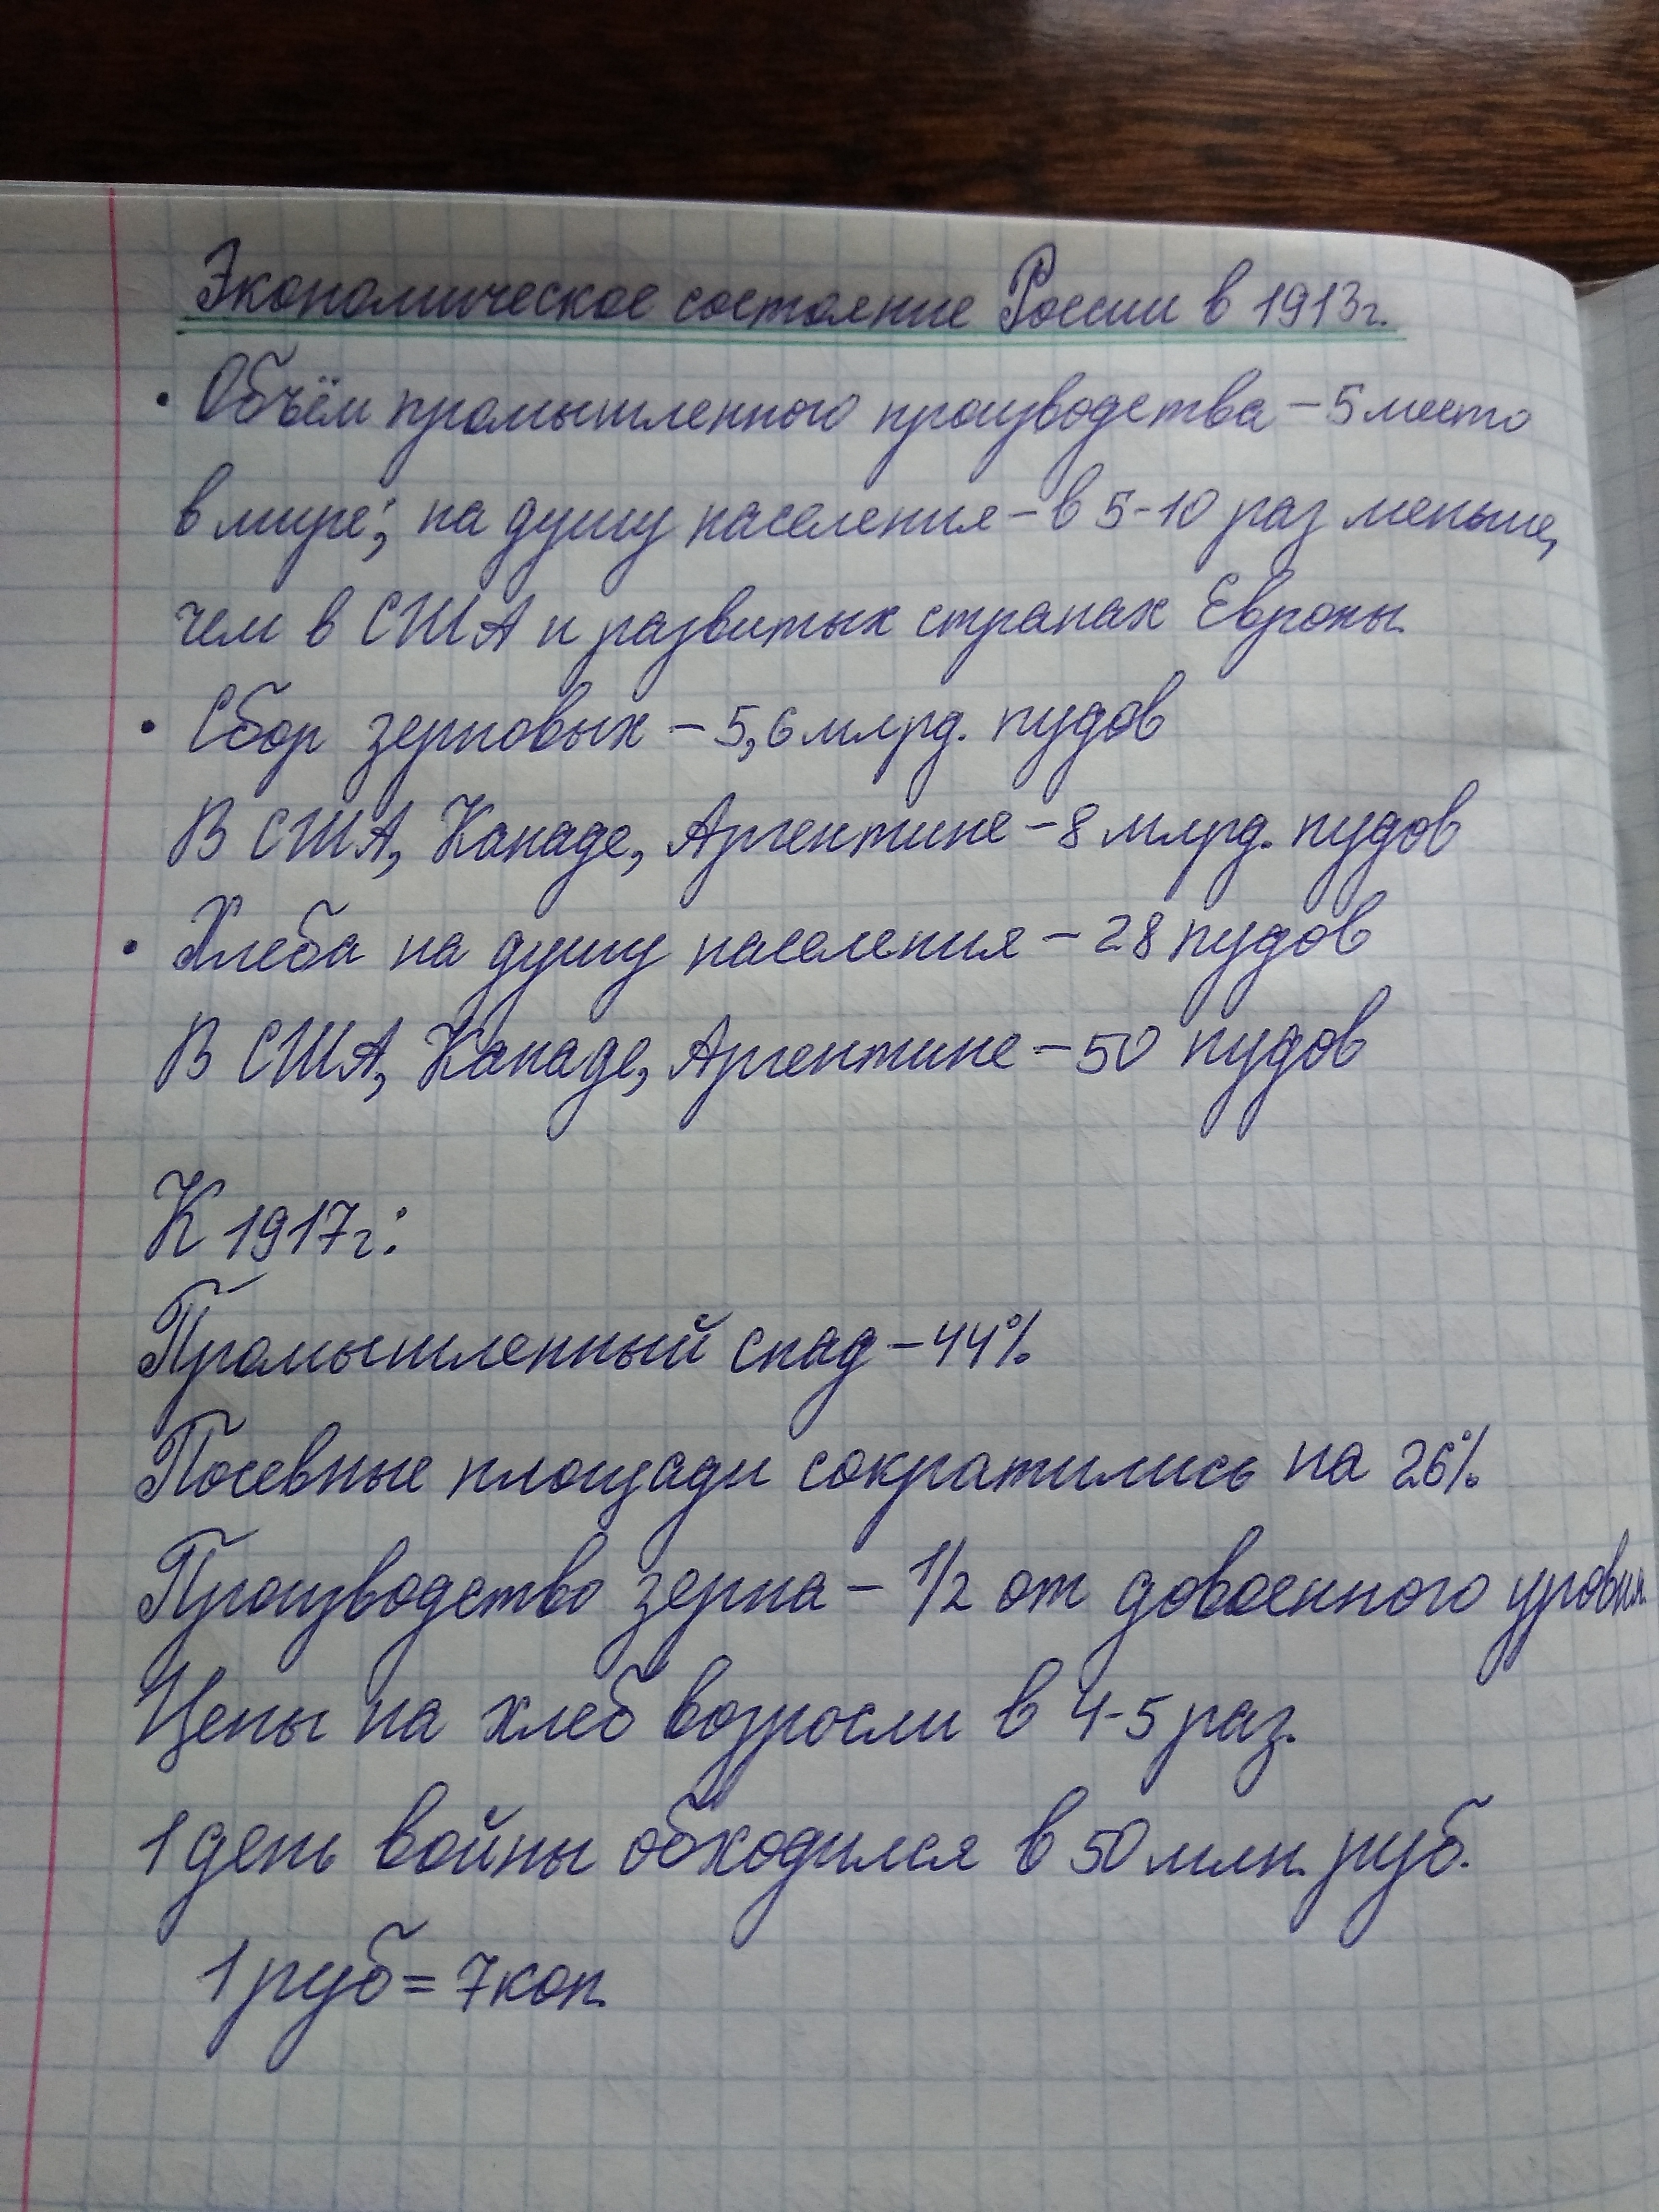 Экономическое состояние России в 1913г.
• Объём промышленного производства – 5 место
в мире; на душу населения – в 5-10 раз меньше,
чем в США и развитых странах Европы.
• Сбор зерновых – 5,6 млрд. пудов
В США, Канаде, Аргентине – 8 млрд. пудов
• Хлеба на душу населения – 28 пудов
В США, Канаде, Аргентине – 50 пудов
К 1917г.:
Промышленный спад – 44%
Посевные площади сократились на 26%
Производство зерна – 1/2 от довоенного уровня.
Цены на хлеб возросли в 4-5 раз.
1 день войны обходился в 50 млн. руб.
1 руб = 7 коп.